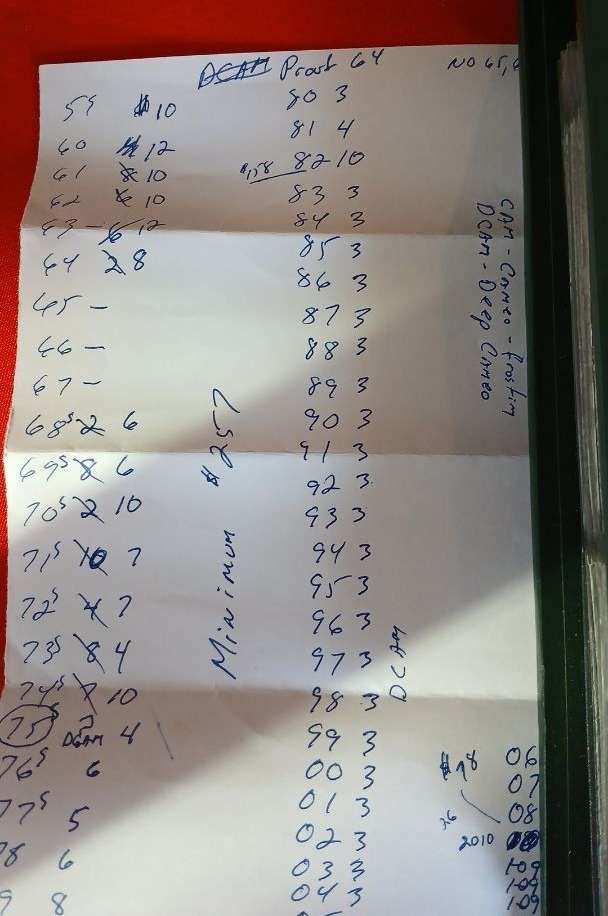 Proof 64
NO 65,6
59 $10
60 12
61 10
62 10
63 - 12
64 2 8
65 -
66 -
67 -
68S 2 6
69S 8 6
70S 2 10
71S 10 7
72S 4 7
73S 8 4
74S 7 10
75S DCAM 4
76S 6
77S 5
78 6
9 8
Minimum $257
80 3
81 4
82 10
83 3
84 3
85 3
86 3
87 3
88 3
89 3
90 3
91 3
92 3
93 3
94 3
95 3
96 3
97 3
98 3
99 3
00 3
01 3
02 3
03 3
04 3
DCAM
CAM - Cameo - Frostin
DCAM - Deep Cameo
06
07
08
2010
109
109
109